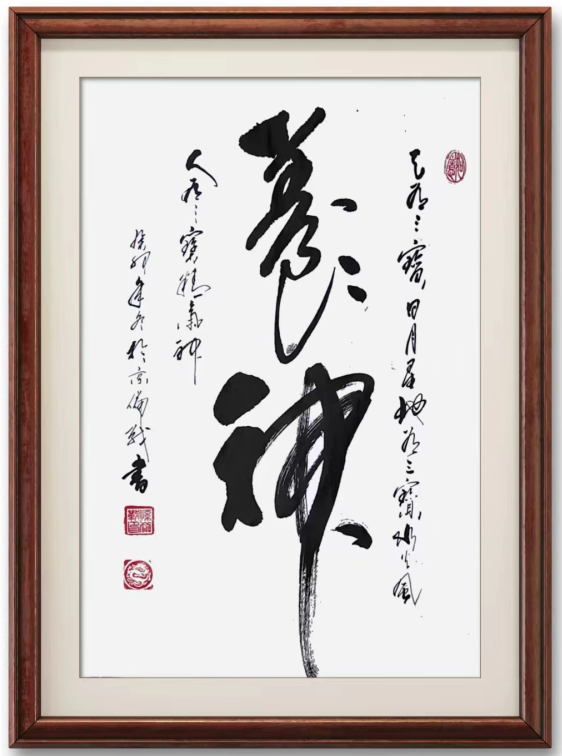 天有三寶日月星地有三寶水火風
養神
人有三寶精氣神
癸卯年冬於京倫戰書